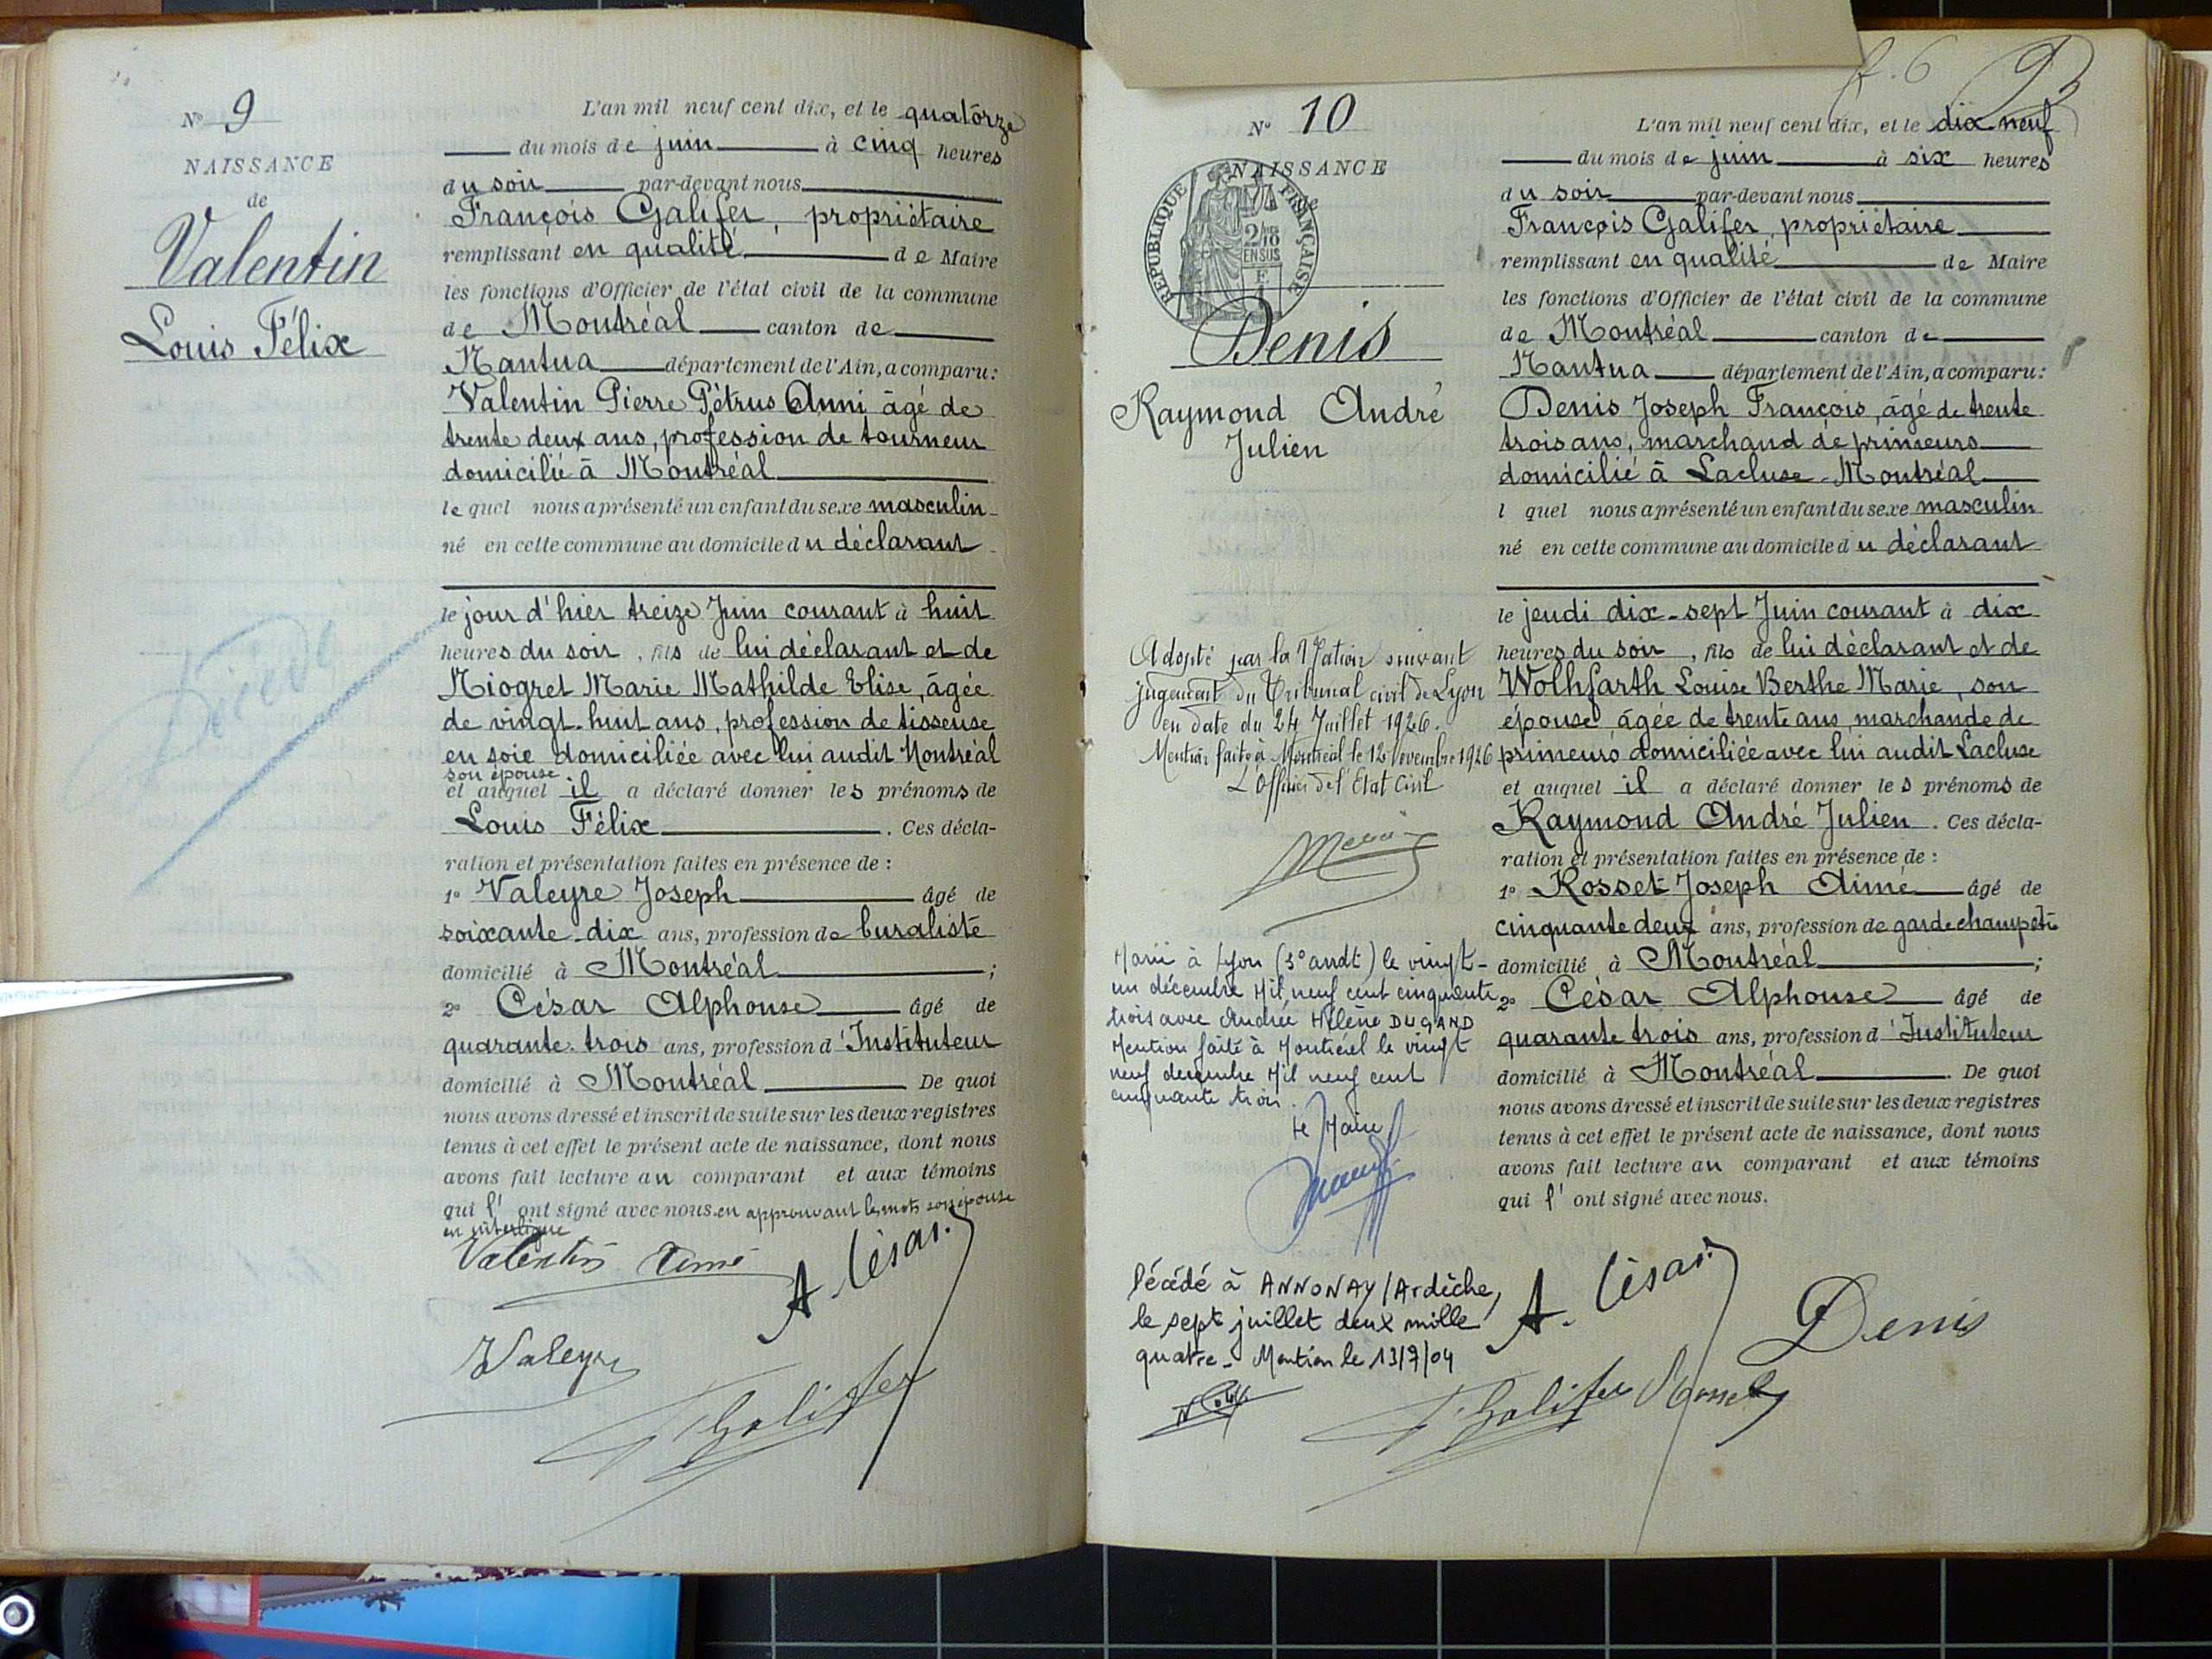 N° 9
NAISSANCE
de
Valentin
Louis Félix
L'an mil neuf cent dix, et le quatorze
du mois de juin à cinq heures
du soir par-devant nous
François Galifer, propriétaire
remplissant en qualité de Maire
les fonctions d'Officier de l'état civil de la commune
de Montréal canton de
Nantua département de l'Ain, a comparu:
Valentin Pierre Pétrus Anni âgé de
trente deux ans, profession de tourneur
domicilié à Montréal
le quel nous a présenté un enfant du sexe masculin
né en cette commune au domicile du déclarant
le jour d'hier treize Juin courant à huit
heures du soir, fils de lui déclarant et de
Niogret Marie Mathilde Elise, âgée
de vingt-huit ans, profession de tisseuse
en soie domiciliée avec lui audit Montréal
son épouse
et auquel il a déclaré donner les prénoms de
Louis Félix. Ces décla-
ration et présentation faites en présence de :
1° Valeyre Joseph âgé de
soixante-dix ans, profession de buraliste
domicilié à Montréal ;
2° César Alphonse âgé de
quarante-trois ans, profession d'Instituteur
domicilié à Montréal De quoi
nous avons dressé et inscrit de suite sur les deux registres
tenus à cet effet le présent acte de naissance, dont nous
avons fait lecture au comparant et aux témoins
qui l'ont signé avec nous en approuvant les mots son épouse
en interligne
Valentin
A. César
Valeyre
Galifer
f. 6
93
N° 10
NAISSANCE
de
RÉPUBLIQUE FRANÇAISE
2/10
EN SUS
Denis
Raymond André
Julien
Adopté par la Nation suivant
jugement du Tribunal civil de Lyon
en date du 24 Juillet 1926.
Mention faite à Montréal le 12 novembre 1926
L'Officier de l'Etat Civil
Marié à Lyon (3° arrdt) le vingt-
un décembre Mil neuf cent cinquante
trois avec Andrée Hélène DUGAND
Mention faite à Montréal le vingt
neuf décembre Mil neuf cent
cinquante trois.
Le Maire
Décédé à ANNONAY (Ardèche)
le sept juillet deux mille
quatre - Mention le 13/7/04
L'an mil neuf cent dix, et le dix-neuf
du mois de juin à six heures
du soir par-devant nous
François Galifer, propriétaire
remplissant en qualité de Maire
les fonctions d'Officier de l'état civil de la commune
de Montréal canton de
Nantua département de l'Ain, a comparu:
Denis Joseph François, âgé de trente
trois ans, marchand de primeurs
domicilié à Lacluse-Montréal
l quel nous a présenté un enfant du sexe masculin
né en cette commune au domicile du déclarant
le jeudi dix-sept Juin courant à dix
heures du soir, fils de lui déclarant et de
Wolhfarth Louise Berthe Marie, son
épouse âgée de trente ans, marchande de
primeurs domiciliée avec lui audit Lacluse
et auquel il a déclaré donner les prénoms de
Raymond André Julien. Ces décla-
ration et présentation faites en présence de :
1° Rosset Joseph Aimé âgé de
cinquante deux ans, profession de garde champêtre
domicilié à Montréal ;
2° César Alphonse âgé de
quarante trois ans, profession d'Instituteur
domicilié à Montréal. De quoi
nous avons dressé et inscrit de suite sur les deux registres
tenus à cet effet le présent acte de naissance, dont nous
avons fait lecture au comparant et aux témoins
qui l'ont signé avec nous.
A. César
Denis
Galifer Rosset